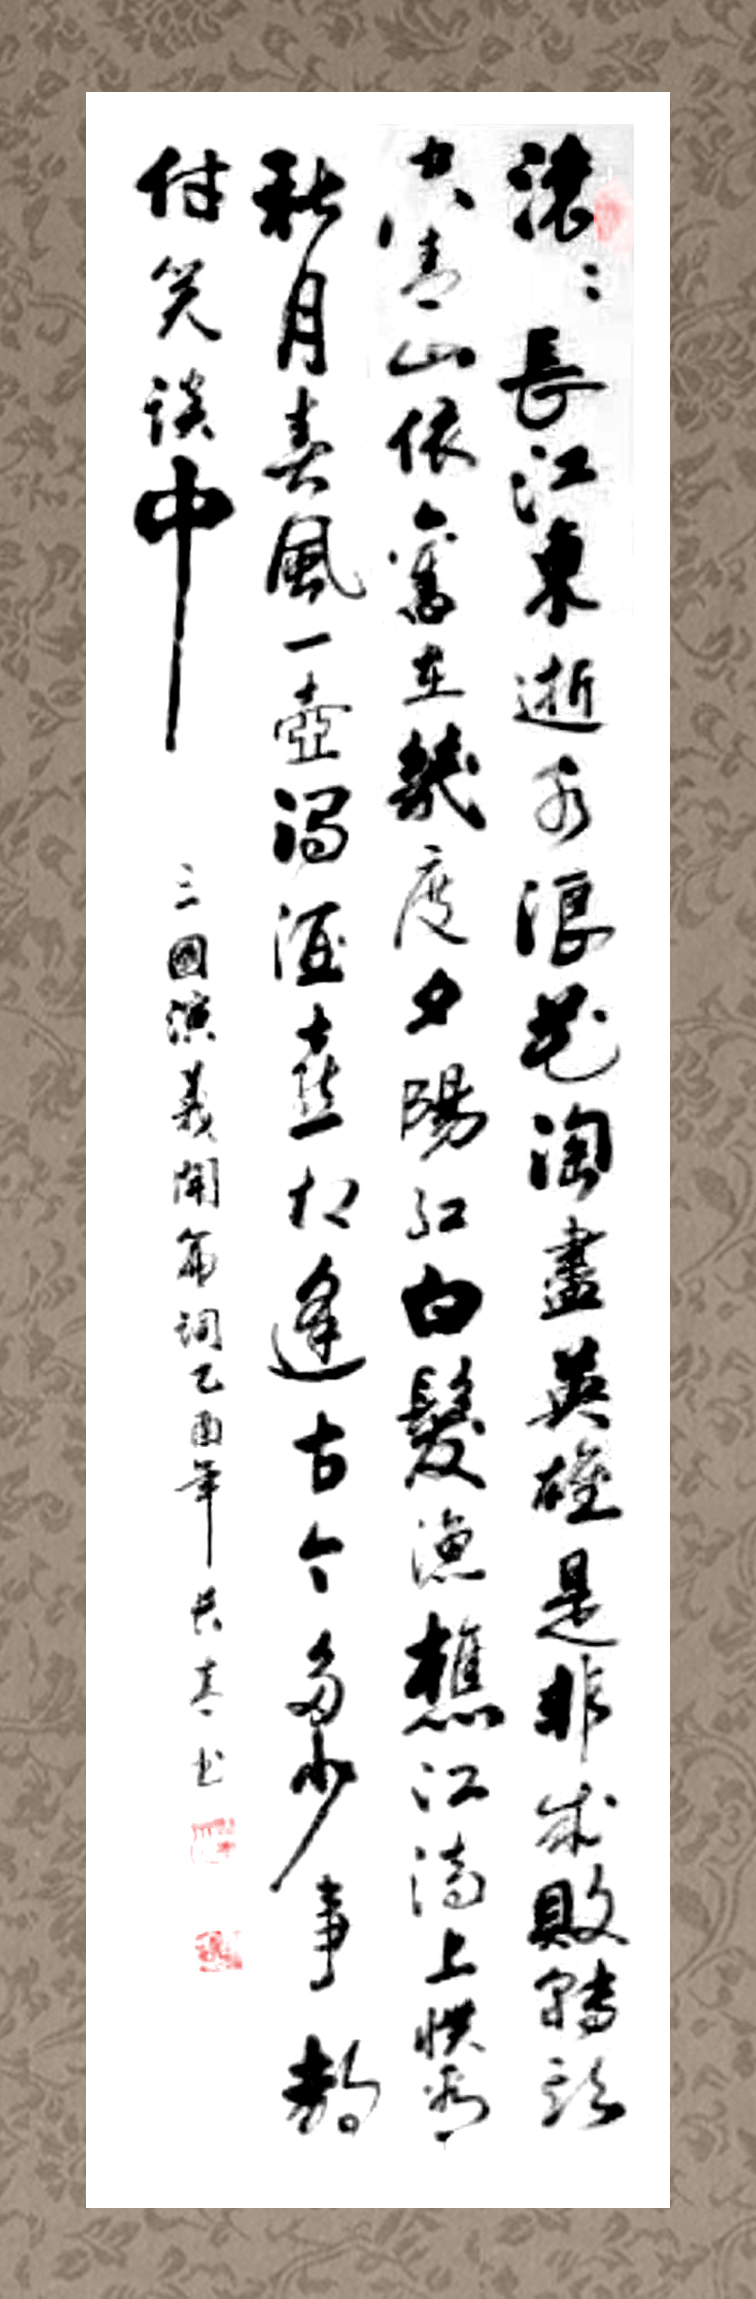 滚〻長江東逝水浪花淘盡英雄是非成敗轉頭
空青山依舊在幾度夕陽紅白髮漁樵江渚上慣看
秋月春風一壺濁酒喜相逢古今多少事都
付笑談中
三國演義開篇詞乙酉年长青书